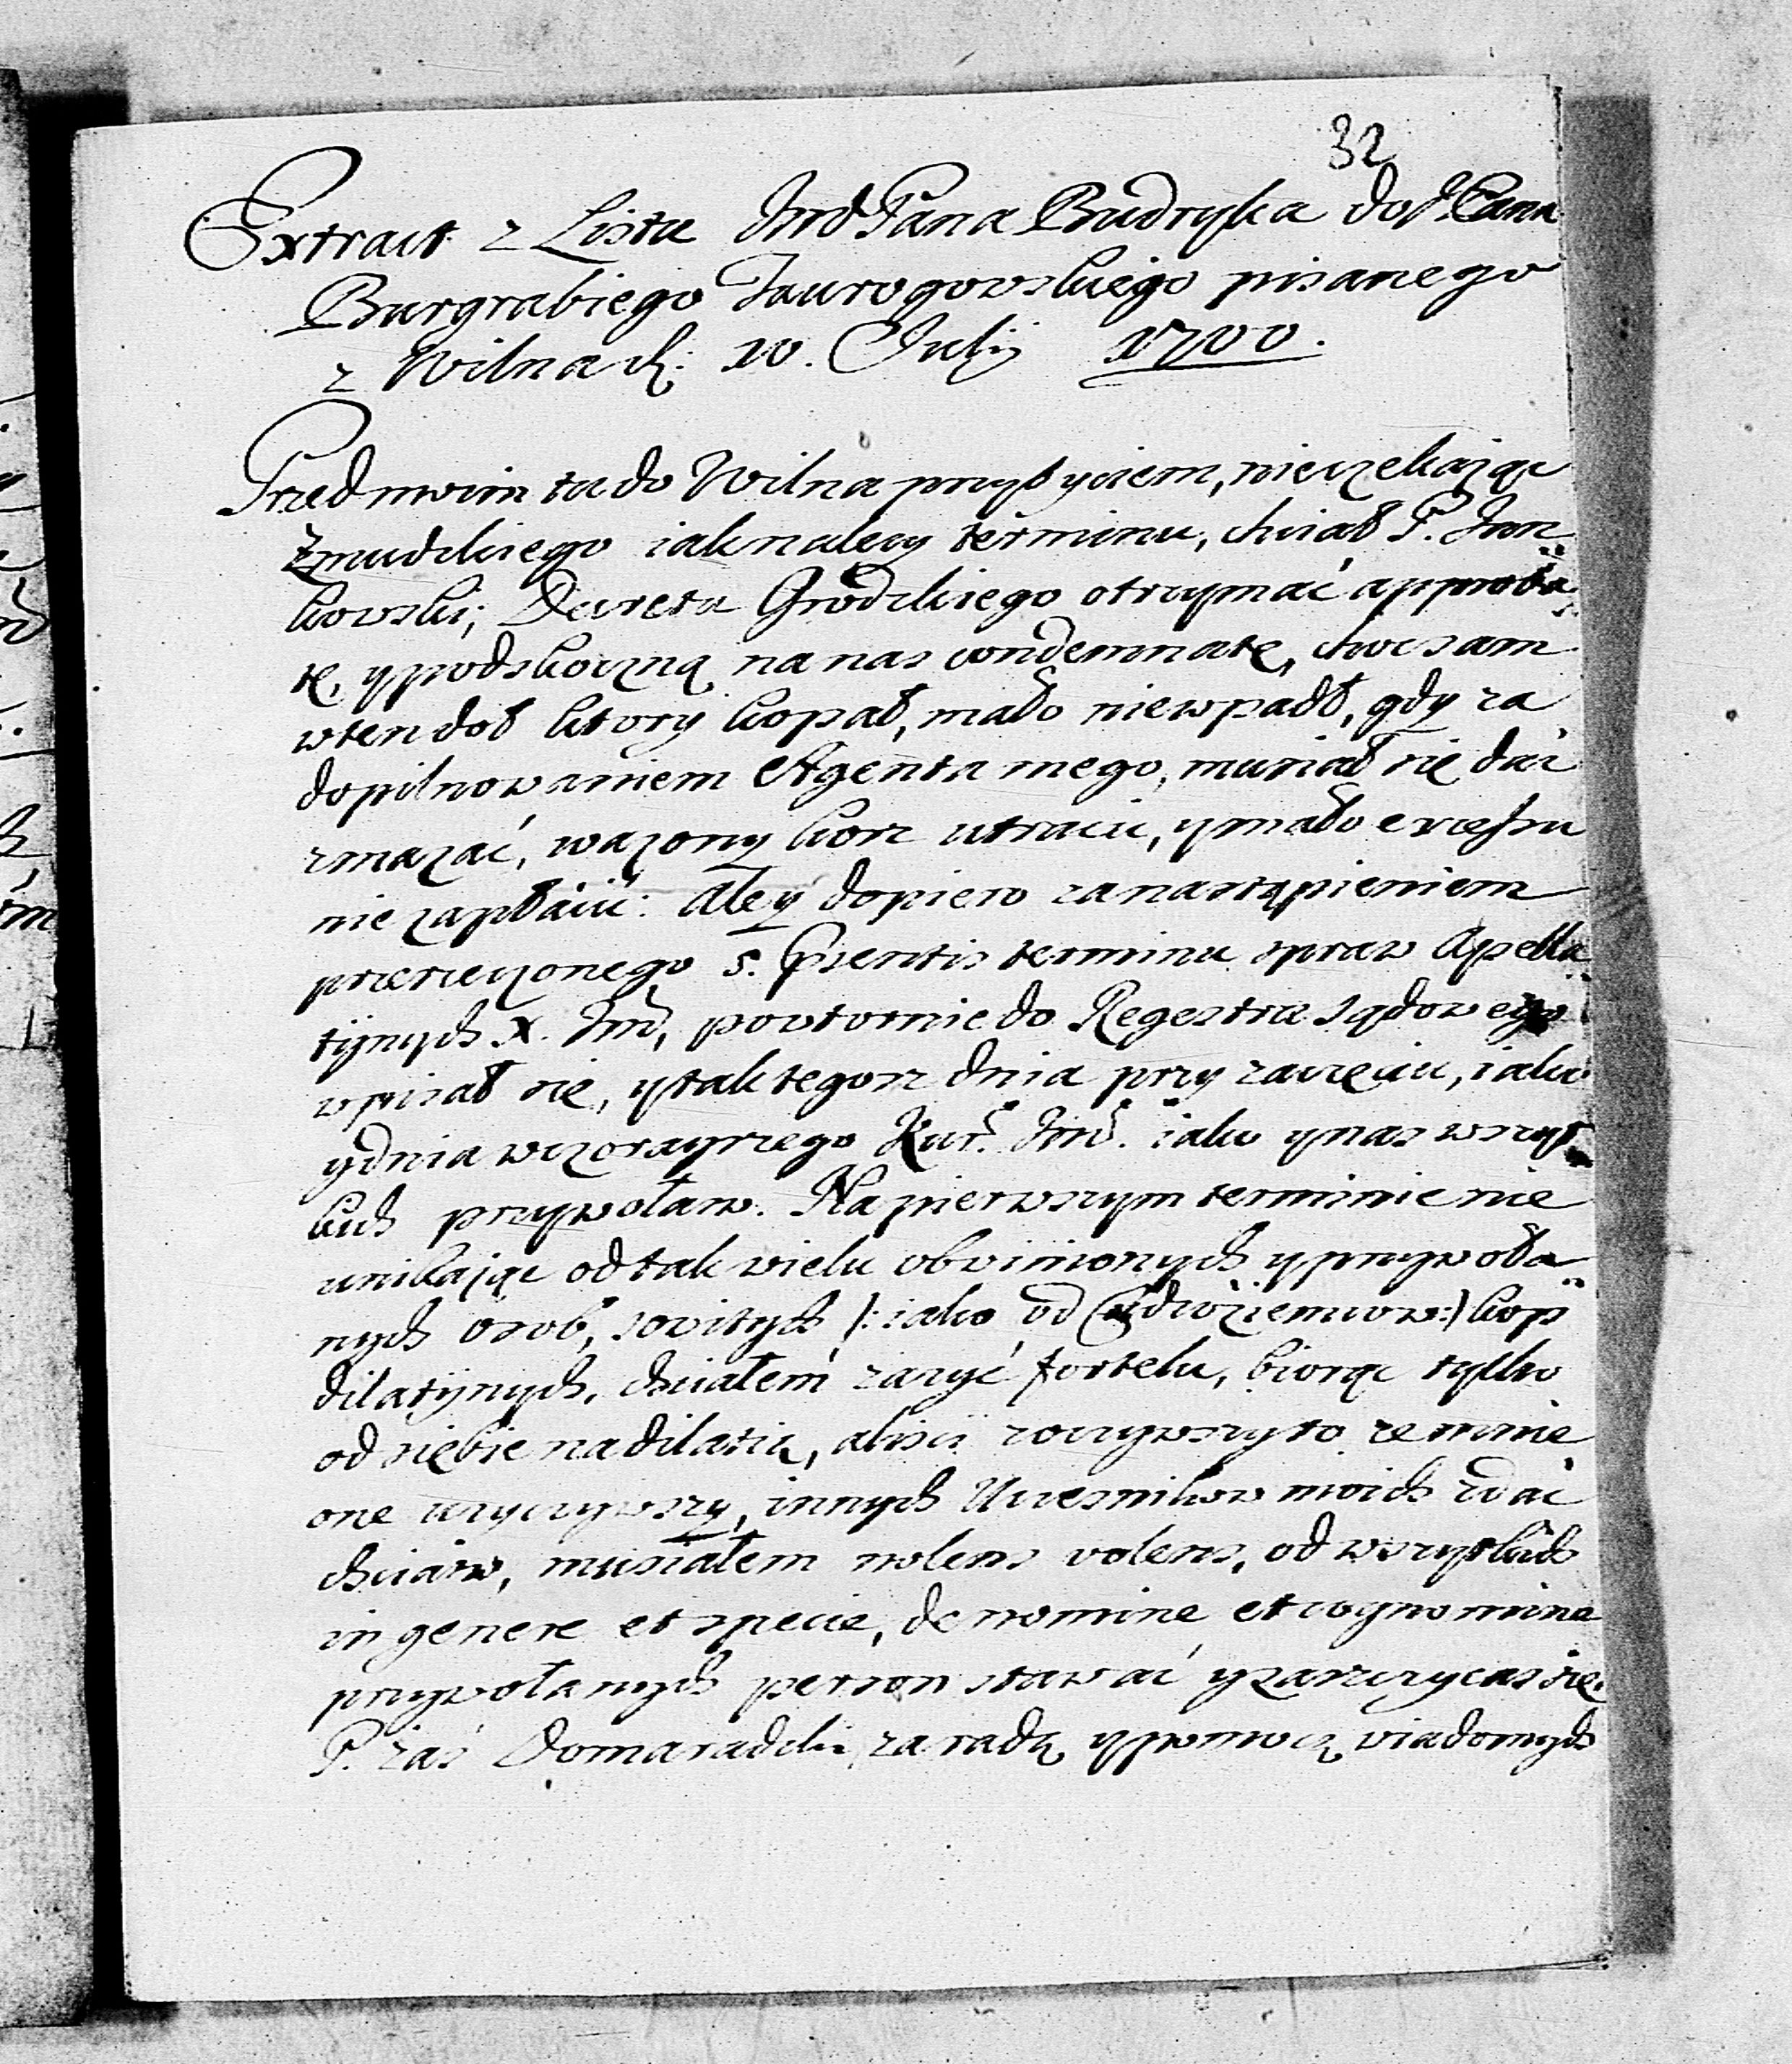 32
Extract z Listu Jmć Pana Budryka do P. Pana
Burgrabiego Taurogowskiego pisanego
z Wilna d. 10. Julij 1700.
Przed moim tu do Wilna przybyciem, nieczekaiąc
Żmudzkiego iak należy terminu, chciał P. Jan
kowski; Decretu Grodzkiego otrzymać approba
tę, y podskoczną na nas condemnatę, choc sam
w ten doł ktory kopał, mało niewpadł, gdy za
dopilnowaniem Agenta mego, musiał się dać
zmazać, ważony korz utracić, y mało excessu
nie zapłacić: Ale y dopiero za nastąpieniem
przerzeczonego 5. Psentis terminu spraw Apella
tijnych X. Jmć, powtornie do Regestru sądowego
wpisał się, y tak tegosz dnia przy zaczęciu, iako
y dnia wczorayszego Kur. Jmć. iako y nas wszyt
kich przywołano. Na pierwszym terminie nie
unikaiąc od tak wielu obwinionych y przywoła
nych osob, sovitych /: iako od Cudzoziemcow :/ kop
dilatijnych, chciałem zażyć fortelu, biorąc tylko
od siebie na dilatią, aliści zoczywszy to ze mnie
one uzyczywszy, innych Uczesnikow moich zdać
chciano, musiałem nolens volens, od wszytkich
in genere et specie, de nomine et cognomine
przywołanych person stawać y zaszczycać się.
P. zaś Domaradzki za radą y pomocą wiadomych